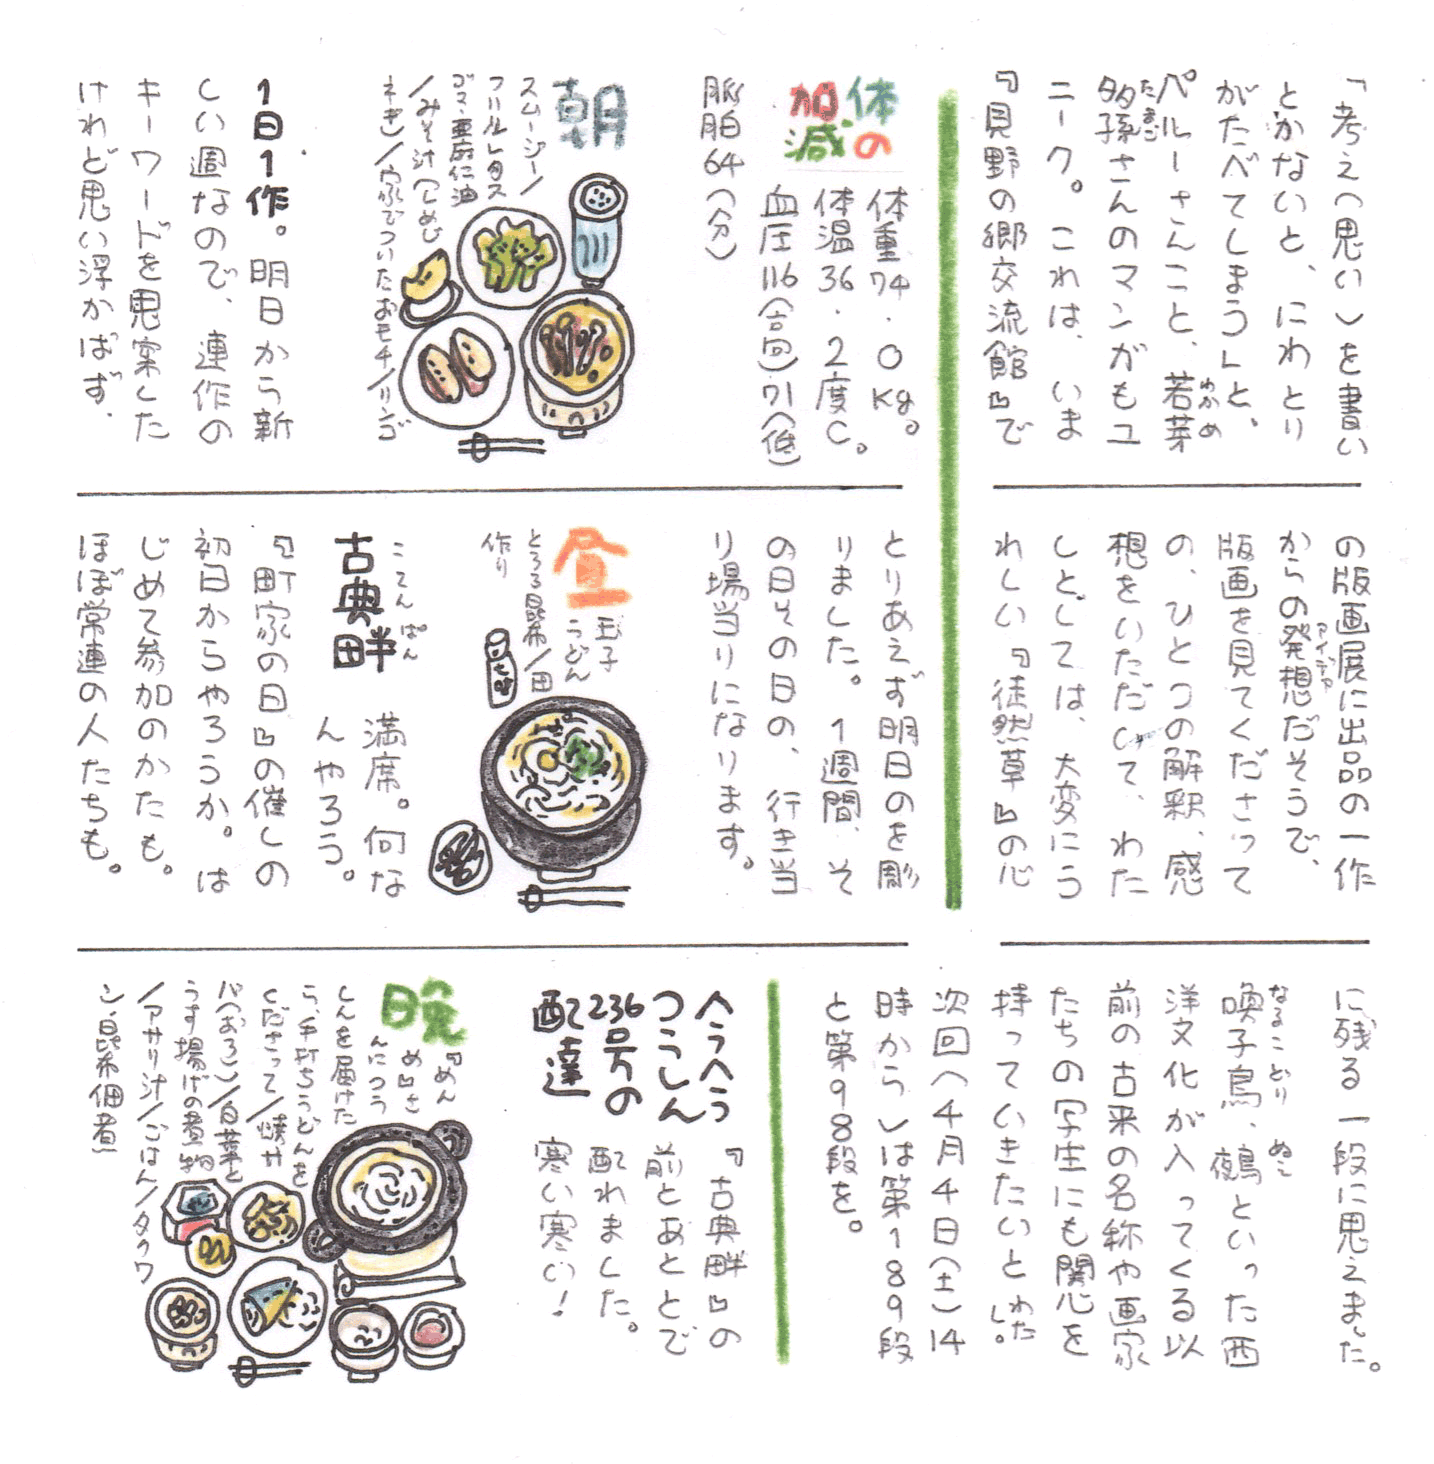 「考え（思い）を書い
とかないと、にわとり
がたべてしまう」と、
ペルーさんこと、若芽
わかめ
多孫さんのマンガもユ
たまご
ニーク。これは、いま
『見野の郷交流館』で
の版画展に出品の一作
からの発想だそうで、
アイデァ
版画を見てくださって
の、ひとつの解釈、感
想をいただいて、わた
しとしては、大変にう
れしい『徒然草』の心
に残る一段に思えました。
なるこどり ぬえ
喚子鳥、鵺といった西
洋文化が入ってくる以
前の古来の名称や画家
たちの写生にも関心を
持っていきたいとわたし。
次回（4月4日（土）14
時から）は第189段
と第98段を。
体の
加減
体重74.0kg。
体温36.2度C。
血圧116（高）71（低）
脈拍64（分）
朝
スムージー／
フリルレタス
ゴマ・亜麻仁油
／みそ汁（しめじ
ネギ）／家でついたおモチ／リンゴ
1日1作。明日から新
しい週なので、連作の
キーワードを思案した
けれど思い浮かばず、
とりあえず明日のを彫
りました。1週間、そ
の日その日の、行き当
り場当りになります。
昼
玉子
うどん
とろろ昆布／田
作り
こてんぱん
古典畔
満席。何な
んやろう。
『町家の日』の催しの
初日からやろうか。は
じめて参加のかたも。
ほぼ常連の人たちも。
へうへう
つうしん
236号の
配達
『古典畔』の
前とあととで
配れました。
寒い寒い！
晩
『めん
め』さ
んにつう
しんを届けた
ら、手打ちうどんを
くださって／焼サ
バ（おろし）／白菜と
うす揚げの煮物
／アサリ汁／ごはん／タクワ
ン、昆布佃煮